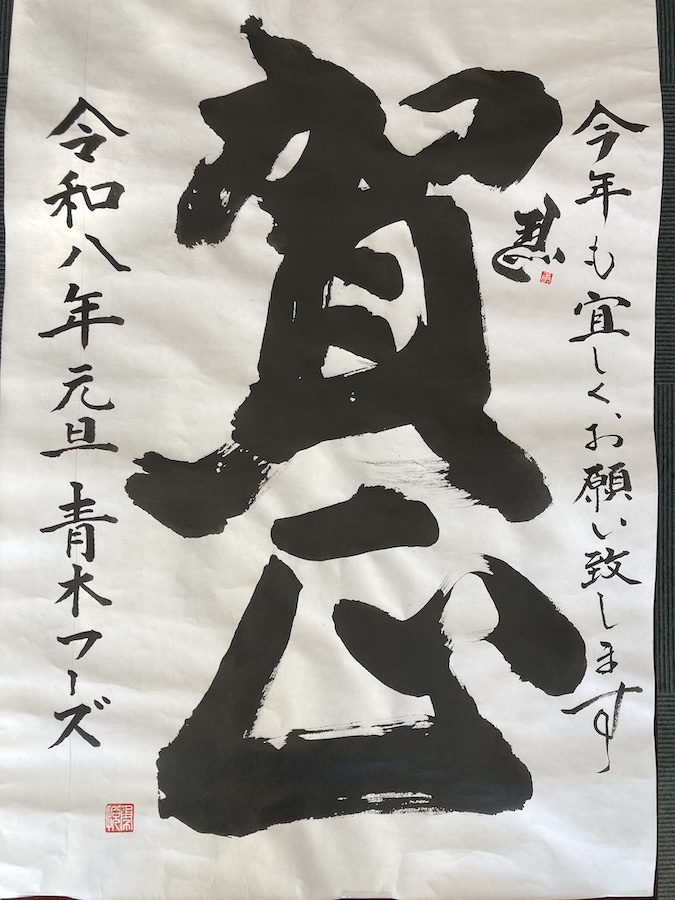 今年も宜しく、お願い致します
賀正
令和八年元旦 青木フーズ